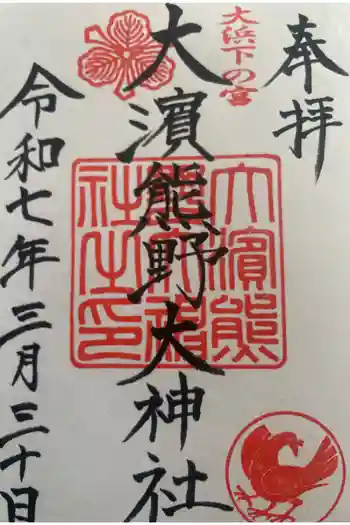 奉拝
大浜下の宮
大濱熊野大神社
大濱熊
野大神
社之印
令和七年三月三十日